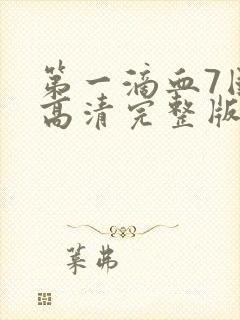 第一滴血7国
高清完整版
莱弗